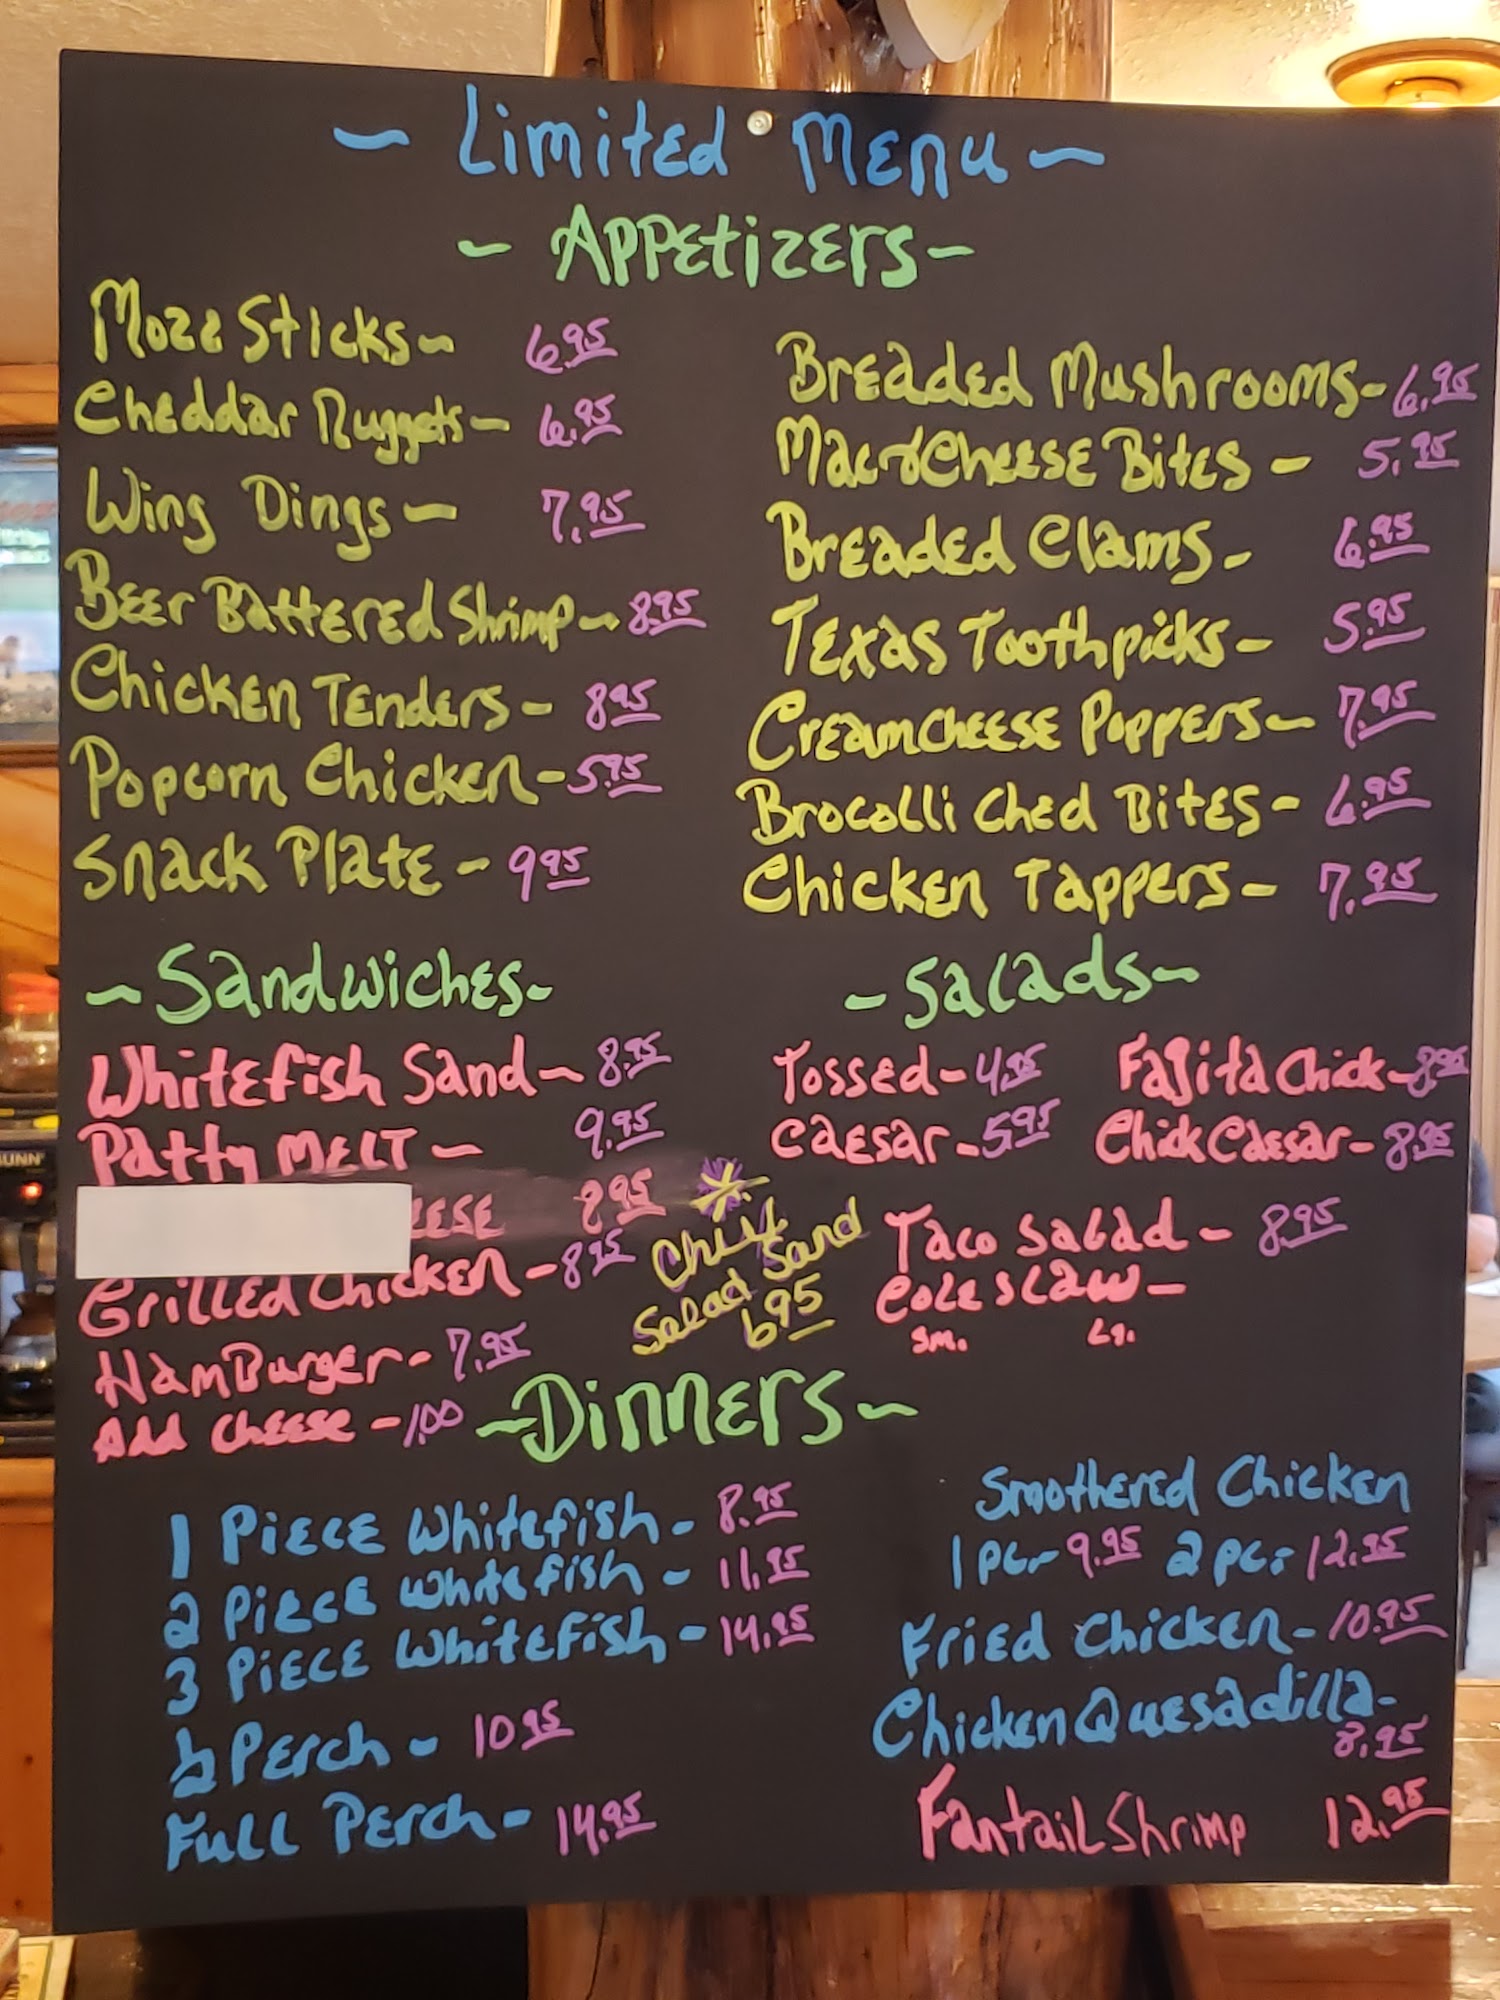 ~ Limited Menu ~
~ Appetizers ~
Mozz Sticks ~ 6.95
Cheddar Nuggets - 6.95
Wing Dings - 7.95
Beer Battered Shrimp ~ 8.95
Chicken Tenders - 8.95
Popcorn Chicken - 5.95
Snack Plate - 9.95
Breaded Mushrooms - 6.95
Mac & Cheese Bites - 5.95
Breaded Clams - 6.95
Texas Toothpicks - 5.95
Creamcheese Poppers - 7.95
Brocolli Ched Bites - 6.95
Chicken Tappers - 7.95
~ Sandwiches -
Whitefish Sand ~ 8.95
Patty Melt ~ 9.95
8.95
Grilled Chicken - 8.95
HamBurger - 7.95
Add Cheese - 1.00
Chick
Salad Sand
6.95
- Salads ~
Tossed - 4.95 Fajita Chick - 8.95
Caesar - 5.95 Chick Caesar - 8.95
Taco Salad - 8.95
Coleslaw -
sm. Lg.
~ Dinners ~
1 Piece Whitefish - 8.95
2 Piece Whitefish - 11.95
3 Piece Whitefish - 14.95
Perch - 10.95
Full Perch - 14.95
Smothered Chicken
1 pc. - 9.95 2 pc. - 12.95
Fried Chicken - 10.95
Chicken Quesadilla -
8.95
Fantail Shrimp 12.95